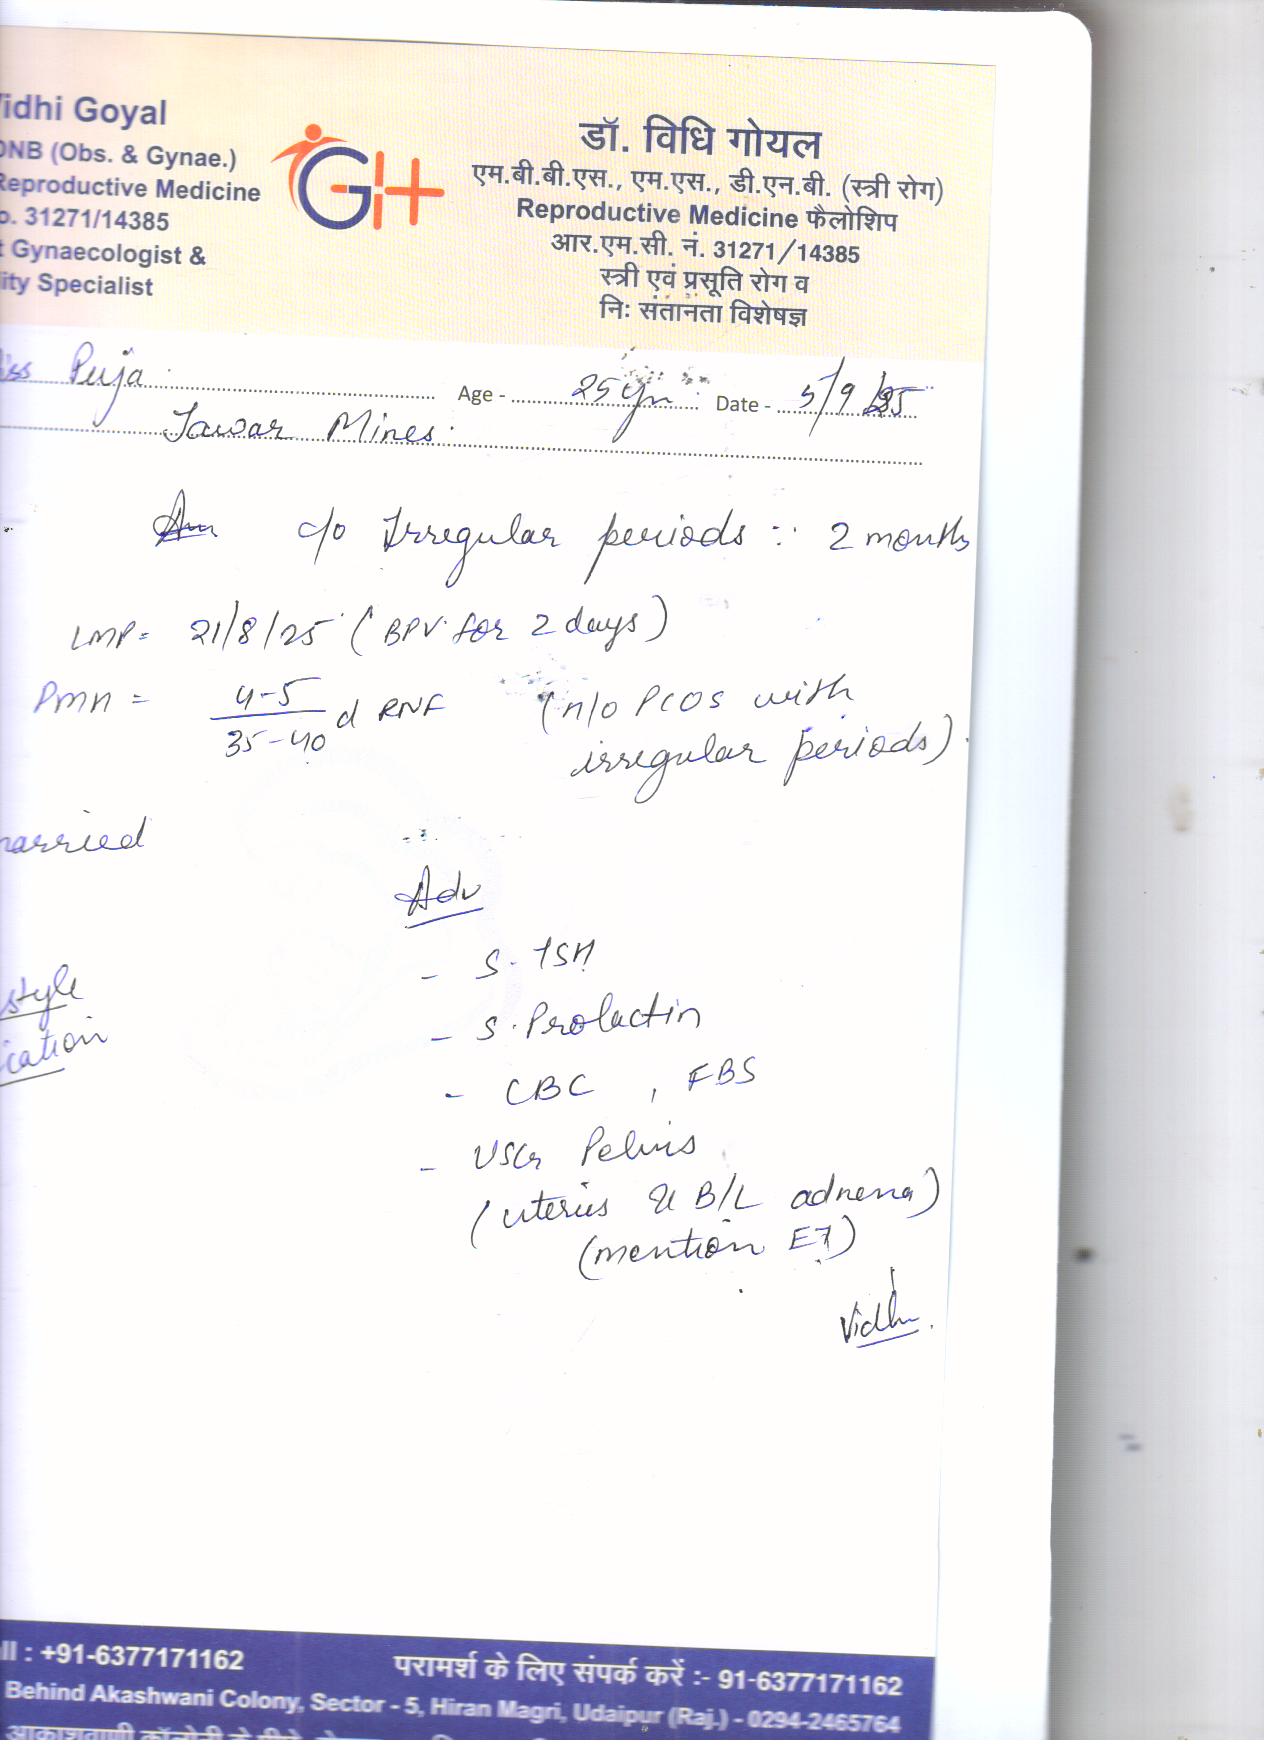 idhi Goyal
DNB (Obs. & Gynae.)
Reproductive Medicine
o. 31271/14385
t Gynaecologist &
ility Specialist
GH
डॉ. विधि गोयल
एम.बी.बी.एस., एम.एस., डी.एन.बी. (स्त्री रोग)
Reproductive Medicine फैलोशिप
आर.एम.सी. नं. 31271/14385
स्त्री एवं प्रसूति रोग व
निः संतानता विशेषज्ञ
iss Puja Age - 25 yr Date - 5/9/25
Jawar Mines
c/o Irregular periods ∵ 2 months
LMP = 21/8/25 (BPV for 2 days)
PMH = 4-5/35-40 d RNF (h/o PCOS with
irregular periods).
married
Adv
- S. TSH
style
- S. Prolactin
ication
- CBC, FBS
- USG Pelvis
(uterus & B/L adnexa)
(mention ET)
Vidhi
ll : +91-6377171162 परामर्श के लिए संपर्क करें :- 91-6377171162
Behind Akashwani Colony, Sector - 5, Hiran Magri, Udaipur (Raj.) - 0294-2465764